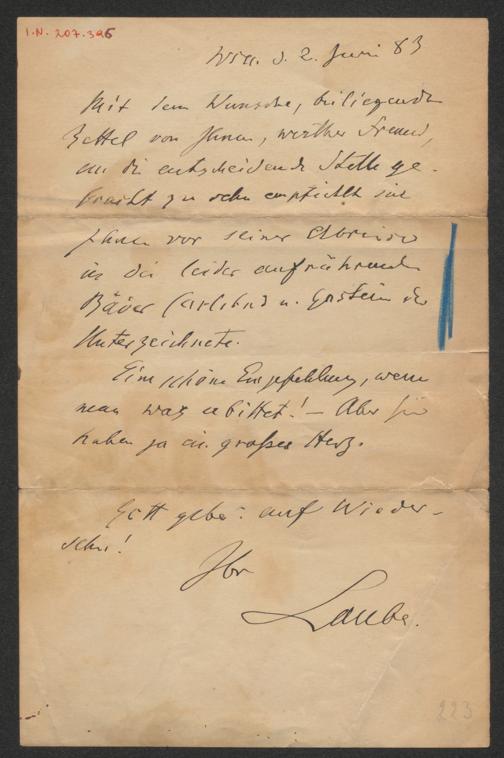 I.N. 207.396
Wien. d. 2. Juni 83
Mit dem Wunsche, beiliegenden
Zettel von Ihnen, werther Freund,
an die entscheidende Stelle ge-
bracht zu sehn empfiehlt sich
Ihnen vor seiner Abreise
in die leider aufrührenden
Bäder Carlsbad u. Gastein der
Unterzeichnete.
Eine schöne Empfehlung, wenn
man was erbittet! – Aber Sie
haben ja ein großes Herz.
Gott gebe: auf Wieder-
sehn!
Ihr
Laube.
223